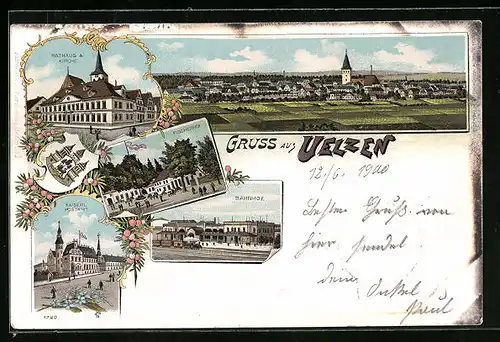 RATHAUS & KIRCHE.
FISCHERHOF
GRUSS AUS UELZEN
12./6. 1900
BAHNHOF
KAISERL. POSTAMT
Besten Gruß von
hier sendet
dein Onkel
Paul
1790